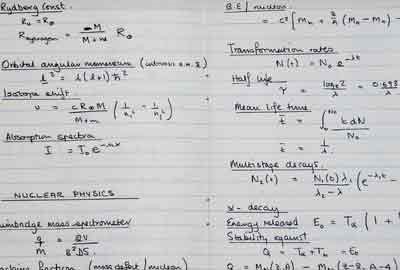 Rydberg Const.
R₀ = R∞
R_hydrogen = M / (M + m) R∞
Orbital angular momentum
l² = l(l+1)ħ²
Isotope shift.
ν = cR∞M / (M+m) (1/n₁² − 1/n₂²)
Absorption spectra
I = I₀e
NUCLEAR PHYSICS
mass spectrometer
q/m = 2V / B²DS
fraction (mass defect / nucleon)
B.E / nucleon
= c² [ Mₙ + z/A (Mₕ − Mₙ) −
Transformation rates
N(t) = N₀ e^−λt
Half life
τ = logₑ2 / λ = 0.693 / λ
Mean life time
t̄ = ∫₀^N₀ t dN / N₀
t̄ = 1/λ
Multistage decays.
N₂(t) = N₁(0) λ₁ / (λ₂ − λ₁) (e^−λ₁t −
α- decay
Energy released E₀ = Tα (1 +
Stability against
Q = Tα + Tₕ = E₀
Q = M (Z,A) − M (Z-2, A-4)